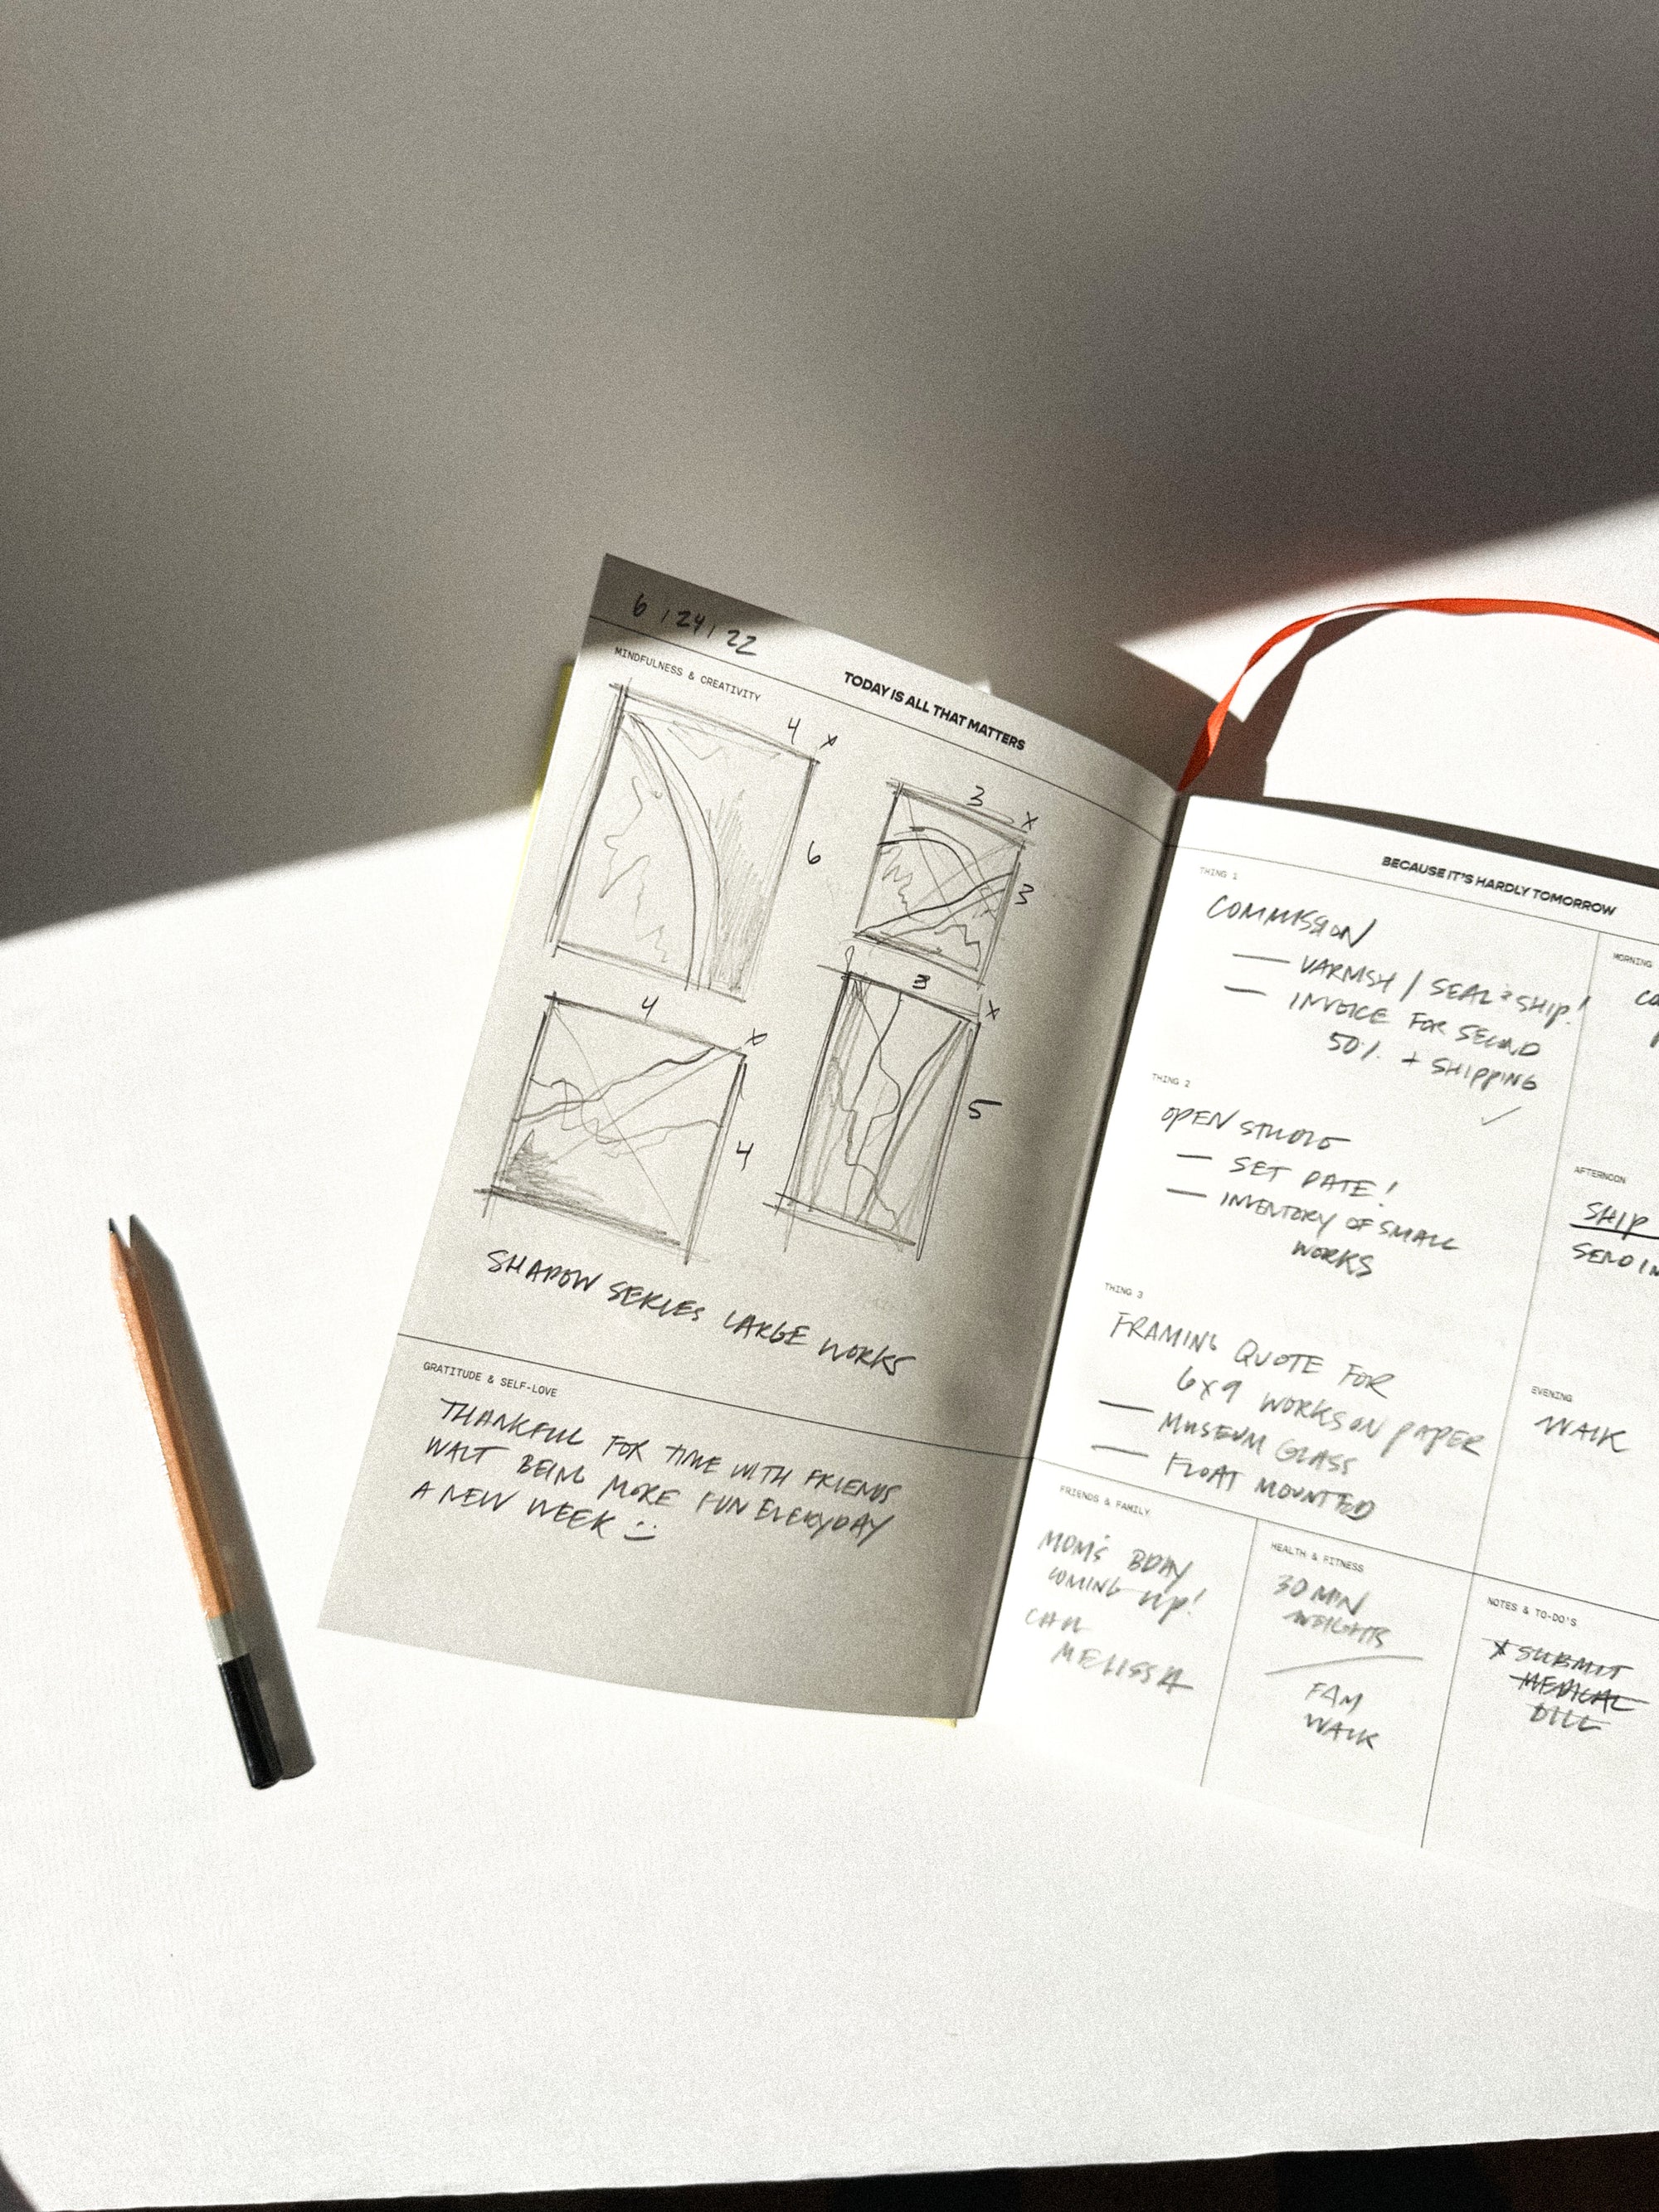 6 / 24 / 22
MINDFULNESS & CREATIVITY
TODAY IS ALL THAT MATTERS
4 x
6
3 x
3
4 x
4
3 x
5
SHADOW SERIES LARGE WORKS
GRATITUDE & SELF-LOVE
THANKFUL FOR TIME WITH FRIENDS
WALT BEING MORE FUN EVERYDAY
A NEW WEEK
BECAUSE IT'S HARDLY TOMORROW
THING 1
COMMISSION
— VARNISH / SEAL & SHIP!
— INVOICE FOR SECOND
50% + SHIPPING
THING 2
OPEN STUDIO
— SET DATE!
— INVENTORY OF SMALL
WORKS
THING 3
FRAMING QUOTE FOR
6x9 WORKS ON PAPER
— MUSEUM GLASS
— FLOAT MOUNTED
MORNING
AFTERNOON
SHIP
SEND
EVENING
WALK
FRIENDS & FAMILY
MOM'S BDAY
COMING UP!
CALL
MELISSA
HEALTH & FITNESS
30 MIN
WEIGHTS
FAM
WALK
NOTES & TO-DO'S
x SUBMIT
MEDICAL
BILL